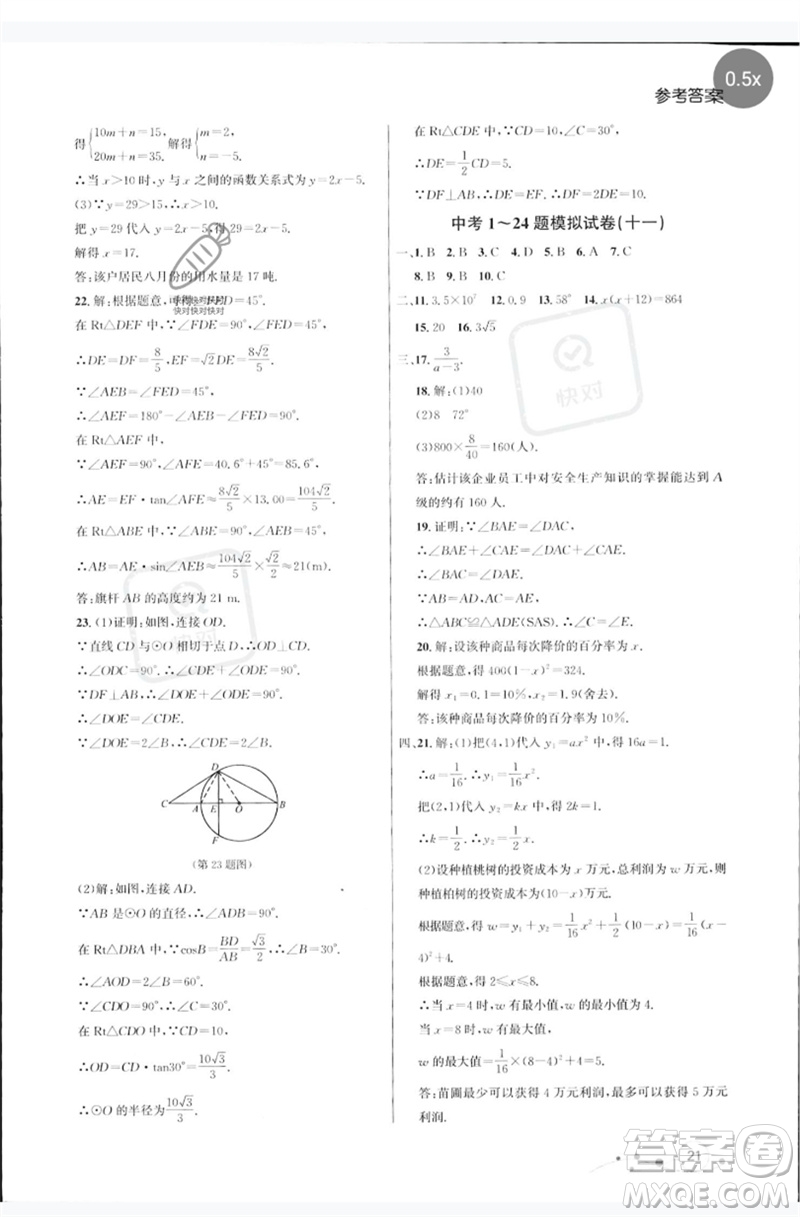 0.5x
参考答案
得{10m+n=15, 20m+n=35. 解得{m=2, n=-5.
∴当x>10时,y与x之间的函数关系式为y=2x-5.
(3)∵y=29,∴x>10.
把y=29代入y=2x-5,得29=2x-5.
解得x=17.
答:该户居民八月份的用水量是17吨.
22. 解:根据题意,得∠FED=45°.
在Rt△DEF中,∵∠FDE=90°,∠FED=45°,
∴DE=DF=8/5,∴EF=8√2/5.
∵∠AEB=∠FED=45°,
∴∠AEF=180°-∠AEB-∠FED=90°.
在Rt△AEF中,
∵∠AEF=90°,∠AFE≈40.6°+45°=85.6°,
∴AE=EF·tan∠AFE≈8√2/5×13.00=104√2/5.
在Rt△ABE中,∵∠ABE=90°,∠AEB=45°,
∴AB=AE·sin∠AEB≈104√2/5×√2/2≈21(m).
答:旗杆AB的高度约为21 m.
23. (1)证明:如图,连接OD.
∵直线CD与⊙O相切于点D,∴OD⊥CD.
∴∠ODC=90°.∴∠CDE+∠ODE=90°.
∵DF⊥AB,∴∠AOD+∠ODE=90°.
∴∠CDE=∠AOD.
∵∠AOD=2∠B,∴∠CDE=2∠B.
D
C A E O B
F
(第23题图)
(2)解:如图,连接AD.
∵AB是⊙O的直径,∴∠ADB=90°.
在Rt△DBA中,∵cosB=BD/AB=√3/2,∴∠B=30°.
∴∠AOD=2∠B=60°.
∵∠CDO=90°,∴∠C=30°.
在Rt△CDO中,∵CD=10,
∴OD=CD·tan30°=10√3/3.
∴⊙O的半径为10√3/3.
(2)∵CD=10,∠C=30°,
在Rt△CDE中,∵CD=10,∠C=30°,
∴DE=1/2CD=5.
∵DF⊥AB,∴DE=EF.∴DF=2DE=10.
中考1~24题模拟试卷(十一)
一、1. B 2. B 3. C 4. D 5. B 6. A 7. C
8. B 9. B 10. C
二、11. 3.5×10⁷ 12. 0.9 13. 6 14. x(x+12)=864
15. 20 16. 3√5
三、17. 3/(a-3).
18. 解:(1)40
(2)8 72°
(3)800×8/40=160(人).
答:估计该企业员工中对安全生产知识的掌握能达到A
级的约有160人.
19. 证明:∵∠BAE=∠DAC,
∴∠BAE+∠CAE=∠DAC+∠CAE.
∴∠BAC=∠DAE.
∴△ABC≌△ADE(SAS).
20. 解:设该种商品每次降价的百分率为x.
根据题意,得400(1-x)²=324.
解得x₁=0.1=10%,x₂=1.9(舍去).
答:该种商品每次降价的百分率为10%.
四、21. 解:(1)把(4,1)代入y₁=ax²中,得16a=1.
∴a=1/16.∴y₁=1/16x².
把(2,1)代入y₂=kx中,得2k=1.
∴k=1/2.∴y₂=1/2x.
(2)设种植桃树的投资成本为x万元,总利润为w万元,则
种植柏树的投资成本为(10-x)万元.
根据题意,得w=y₁+y₂=1/16x²+1/2(10-x)=1/16(x-
4)²+4.
根据题意,得2≤x≤8.
∴当x=4时,w有最小值,w的最小值为4.
当x=8时,w有最大值,
w的最大值=1/16×(8-4)²+4=5.
答:苗圃最少可以获得4万元利润,最多可以获得5万元
利润.
21
快对
快对
答案圈
MXQE.COM